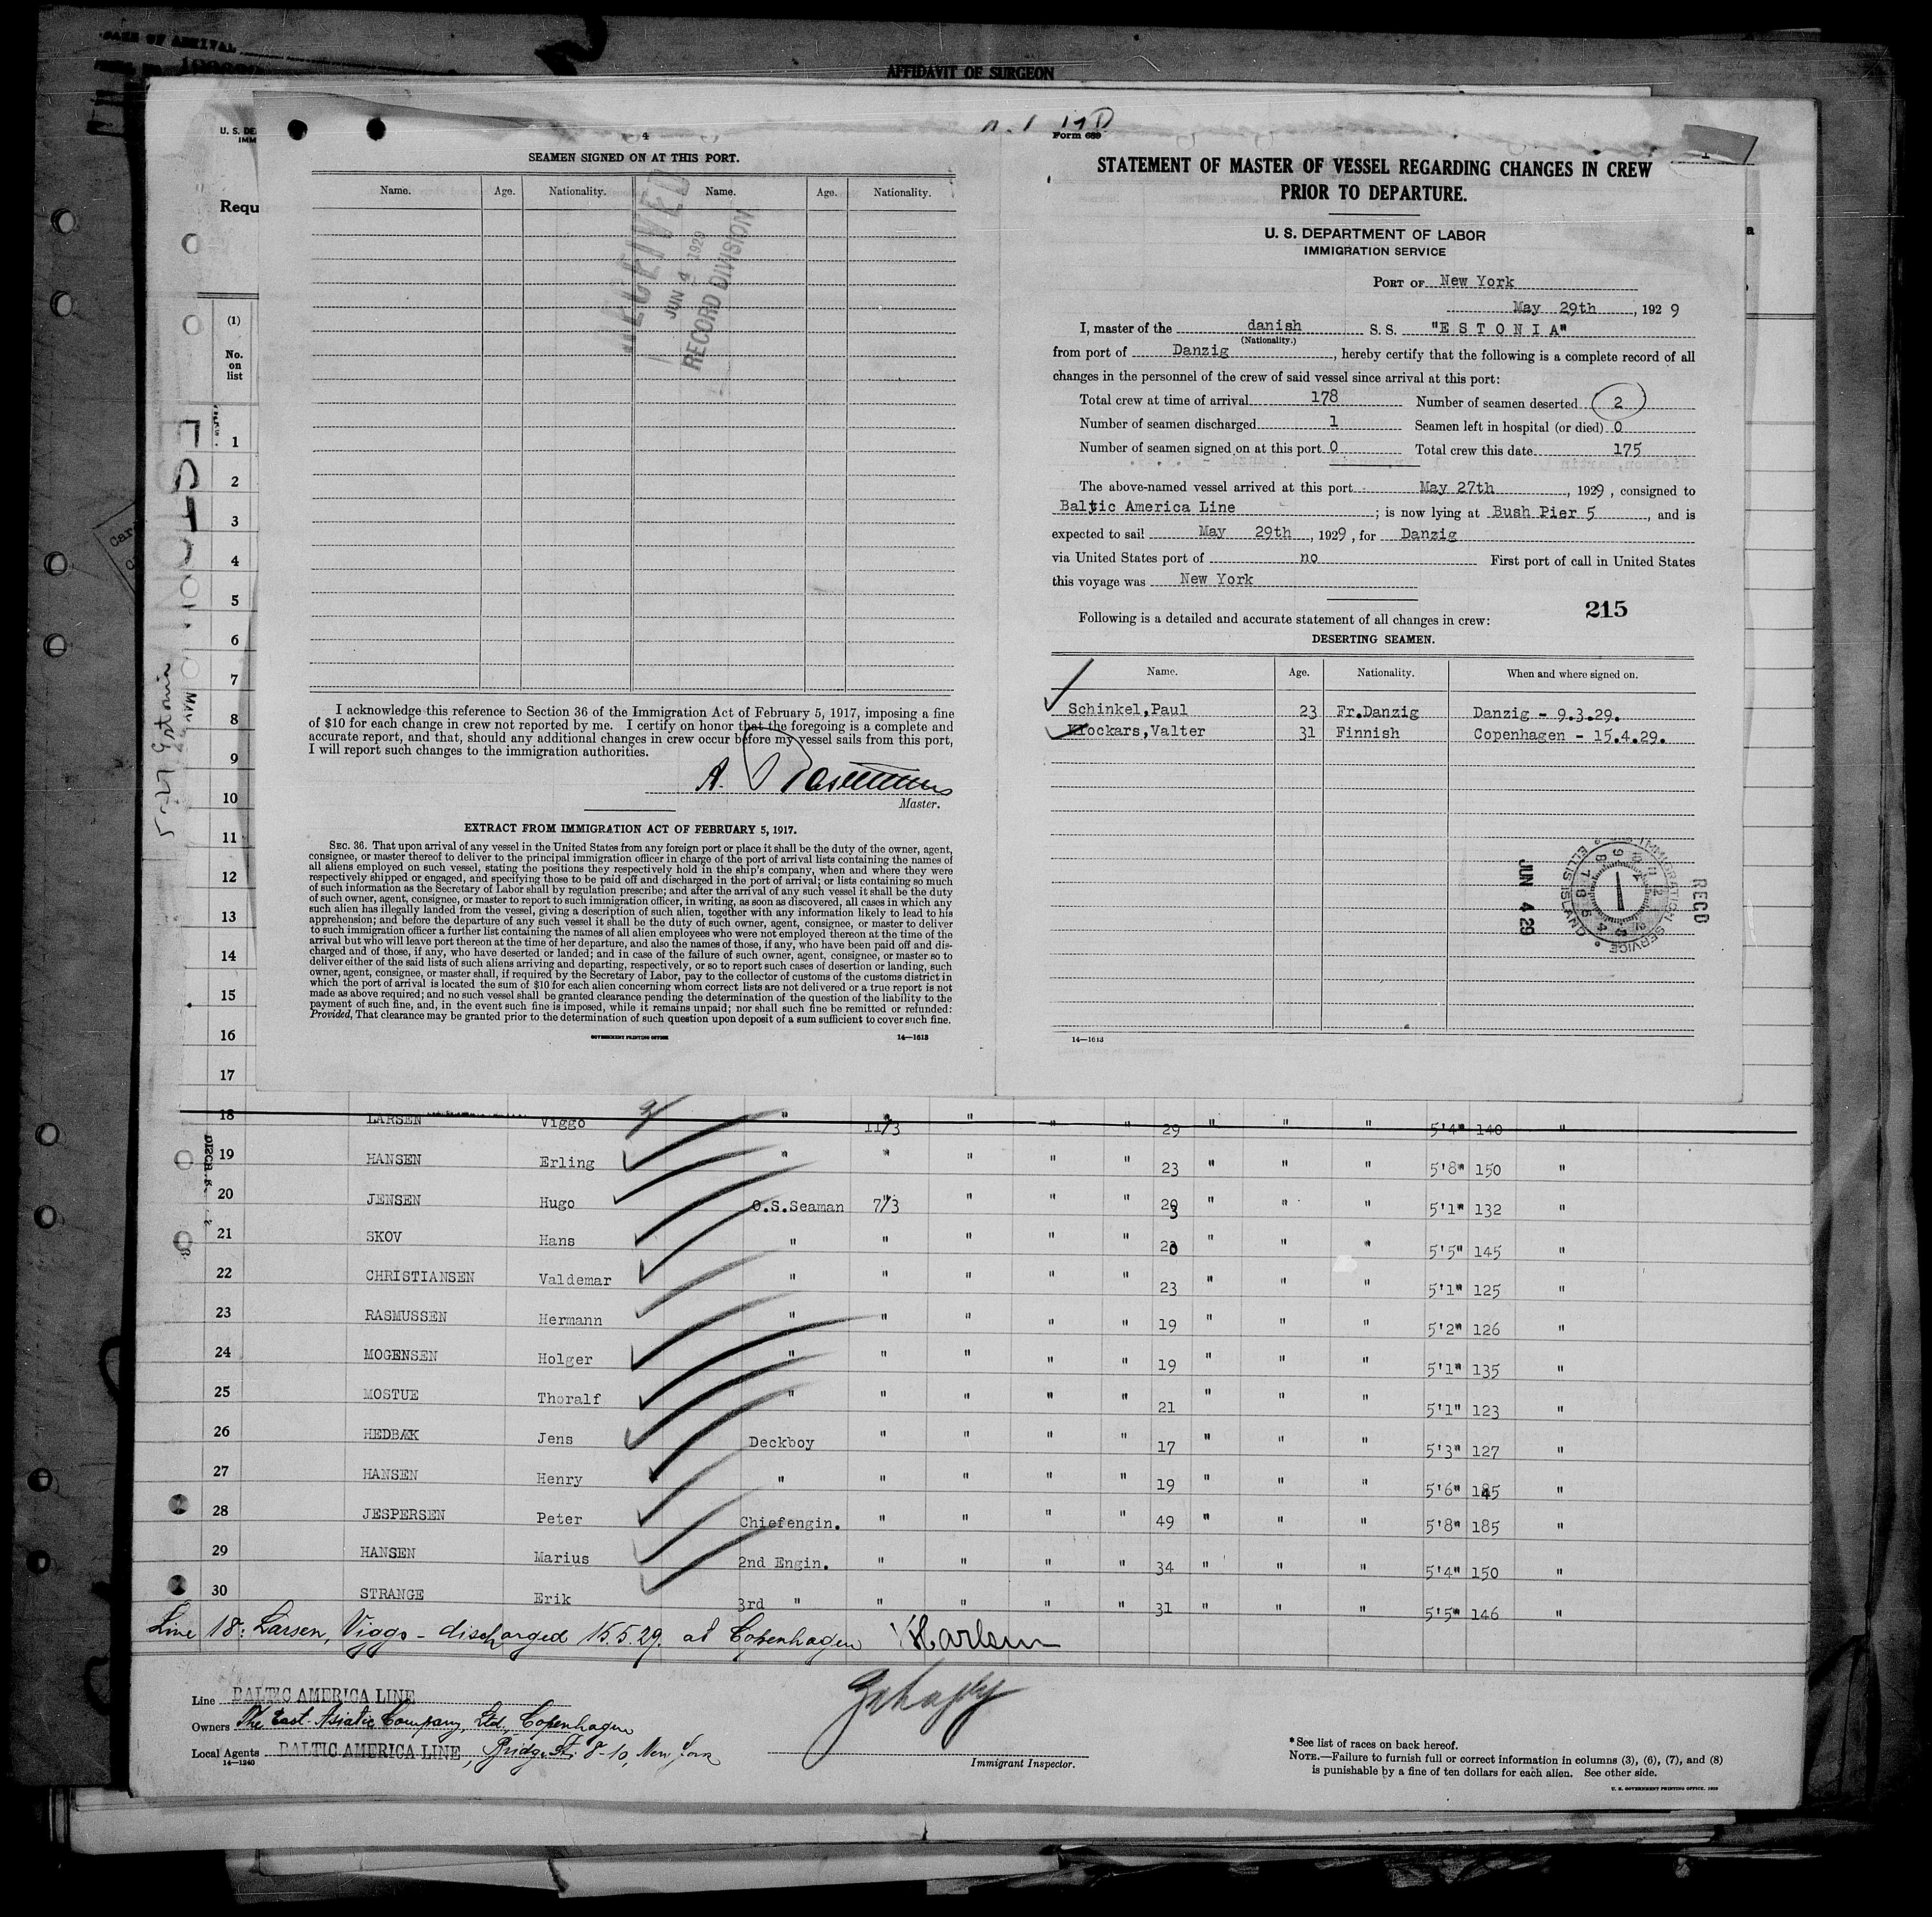 AFFIDAVIT OF SURGEON
4
SEAMEN SIGNED ON AT THIS PORT.
Name. Age. Nationality. Name. Age. Nationality.
RECEIVED
JUN 4 1929
RECORD DIVISION
I acknowledge this reference to Section 36 of the Immigration Act of February 5, 1917, imposing a fine
of $10 for each change in crew not reported by me. I certify on honor that the foregoing is a complete and
accurate report, and that, should any additional changes in crew occur before my vessel sails from this port,
I will report such changes to the immigration authorities.
A. Rasmussen
Master.
EXTRACT FROM IMMIGRATION ACT OF FEBRUARY 5, 1917.
SEC. 36. That upon arrival of any vessel in the United States from any foreign port or place it shall be the duty of the owner, agent,
consignee, or master thereof to deliver to the principal immigration officer in charge of the port of arrival lists containing the names of
all aliens employed on such vessel, stating the positions they respectively hold in the ship's company, when and where they were
respectively shipped or engaged, and specifying those to be paid off and discharged in the port of arrival; or lists containing so much
of such information as the Secretary of Labor shall by regulation prescribe; and after the arrival of any such vessel it shall be the duty
of such owner, agent, consignee, or master to report to such immigration officer, in writing, as soon as discovered, all cases in which any
such alien has illegally landed from the vessel, giving a description of such alien, together with any information likely to lead to his
apprehension; and before the departure of any such vessel it shall be the duty of such owner, agent, consignee, or master to deliver
to such immigration officer a further list containing the names of all alien employees who were not employed thereon at the time of the
arrival but who will leave port thereon at the time of her departure, and also the names of those, if any, who have been paid off and dis-
charged and of those, if any, who have deserted or landed; and in case of the failure of such owner, agent, consignee, or master so to
deliver either of the said lists of such aliens arriving and departing, respectively, or so to report such cases of desertion or landing, such
owner, agent, consignee, or master shall, if required by the Secretary of Labor, pay to the collector of customs of the customs district in
which the port of arrival is located the sum of $10 for each alien concerning whom correct lists are not delivered or a true report is not
made as above required; and no such vessel shall be granted clearance pending the determination of the question of the liability to the
payment of such fine, and, in the event such fine is imposed, while it remains unpaid; nor shall such fine be remitted or refunded:
Provided, That clearance may be granted prior to the determination of such question upon deposit of a sum sufficient to cover such fine.
GOVERNMENT PRINTING OFFICE 14—1613
Form 689
STATEMENT OF MASTER OF VESSEL REGARDING CHANGES IN CREW
PRIOR TO DEPARTURE.
U. S. DEPARTMENT OF LABOR
IMMIGRATION SERVICE
PORT OF New York
May 29th, 1929
I, master of the danish S. S. "E S T O N I A"
(Nationality.)
from port of Danzig, hereby certify that the following is a complete record of all
changes in the personnel of the crew of said vessel since arrival at this port:
Total crew at time of arrival 178 Number of seamen deserted 2
Number of seamen discharged 1 Seamen left in hospital (or died) 0
Number of seamen signed on at this port 0 Total crew this date 175
The above-named vessel arrived at this port May 27th, 1929, consigned to
Baltic America Line; is now lying at Bush Pier 5, and is
expected to sail May 29th, 1929, for Danzig
via United States port of no First port of call in United States
this voyage was New York
215
Following is a detailed and accurate statement of all changes in crew:
DESERTING SEAMEN.
Name. Age. Nationality. When and where signed on.
Schinkel,Paul 23 Fr.Danzig Danzig - 9.3.29.
Krockars,Valter 31 Finnish Copenhagen - 15.4.29.
REC'D
IMMIGRATION SERVICE ELLIS ISLAND
JUN 4 29
14—1613
U. S. DE
IMM
Requ
(1)
No. on list
ESTONIA
5-27 Estonia
1
2
3
4
5
6
7
8
9
10
11
12
13
14
15
16
17
18 LARSEN Viggo " 11/3 " " " 29 " " " 5'4" 140 "
19 HANSEN Erling " " " " " 23 " " " 5'8" 150 "
20 JENSEN Hugo O.S.Seaman 7/3 " " " 23 " " " 5'1" 132 "
21 SKOV Hans " " " " " 20 " " " 5'5" 145 "
22 CHRISTIANSEN Valdemar " " " " " 23 " " " 5'1" 125 "
23 RASMUSSEN Hermann " " " " " 19 " " " 5'2" 126 "
24 MOGENSEN Holger " " " " " 19 " " " 5'1" 135 "
25 MOSTUE Thoralf " " " " " 21 " " " 5'1" 123 "
26 HEDBÆK Jens Deckboy " " " " 17 " " " 5'3" 127 "
27 HANSEN Henry " " " " " 19 " " " 5'6" 145 "
28 JESPERSEN Peter Chiefengin. " " " " 49 " " " 5'8" 185 "
29 HANSEN Marius 2nd Engin. " " " " 34 " " " 5'4" 150 "
30 STRANGE Erik 3rd " " " " " 31 " " " 5'5" 146 "
Line 18: Larsen, Viggo - discharged 15.5.29. at Copenhagen
Line BALTIC AMERICA LINE
Owners The East Asiatic Company, Ltd., Copenhagen
Local Agents BALTIC AMERICA LINE, Bridge St. 8-10, New York
14—1240
Immigrant Inspector.
*See list of races on back hereof.
NOTE.—Failure to furnish full or correct information in columns (3), (6), (7), and (8)
is punishable by a fine of ten dollars for each alien. See other side.
U. S. GOVERNMENT PRINTING OFFICE. 1929